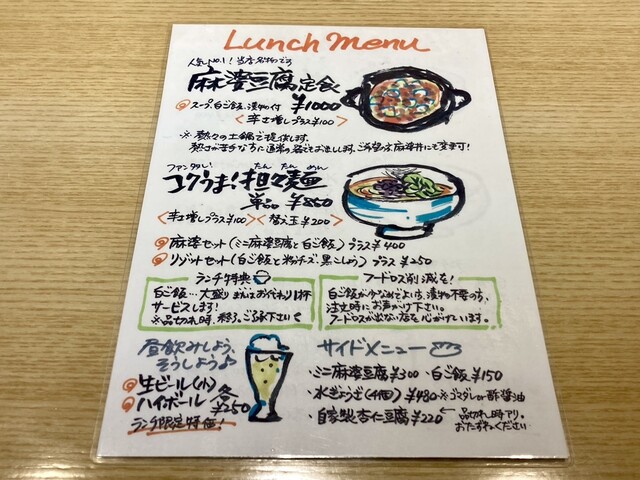 Lunch menu
人気No.1！当店名物です
麻婆豆腐定食
スープ、白ご飯、漬物付 ¥1000
〈辛さ増しプラス¥100〉
※熱々の土鍋で提供します。
熱さが苦手な方に通常の器でもお出しします。ご希望の方麻婆丼にも変更可！
ファンタジい たん たん めん
コクうま！担々麺
単品 ¥850
〈辛さ増しプラス¥100〉〈替え玉¥200〉
麻婆セット(ミニ麻婆豆腐と白ご飯) プラス¥400
リゾットセット(白ご飯と粉チーズ、黒こしょう) プラス¥250
ランチ特典
白ご飯…大盛りまたはおかわり1杯
サービスします！
※品切れ時、終了、ご了承下さい
フードロス削減を！
白ご飯が少なめでよい方、漬物不要の方、
注文時にお声がけ下さい。
フードロスが出ない店を心がけています。
昼飲みしよう、
そうしよう♪
生ビール(小)
ハイボール 各¥250
ランチ限定特価！
サイドメニュー
・ミニ麻婆豆腐¥300 ・白ご飯¥150
・水ぎょうざ(4個) ¥480 ※ゴマダレor酢醤油
・自家製杏仁豆腐¥220 ← 品切れ時アリ。
おたずねください